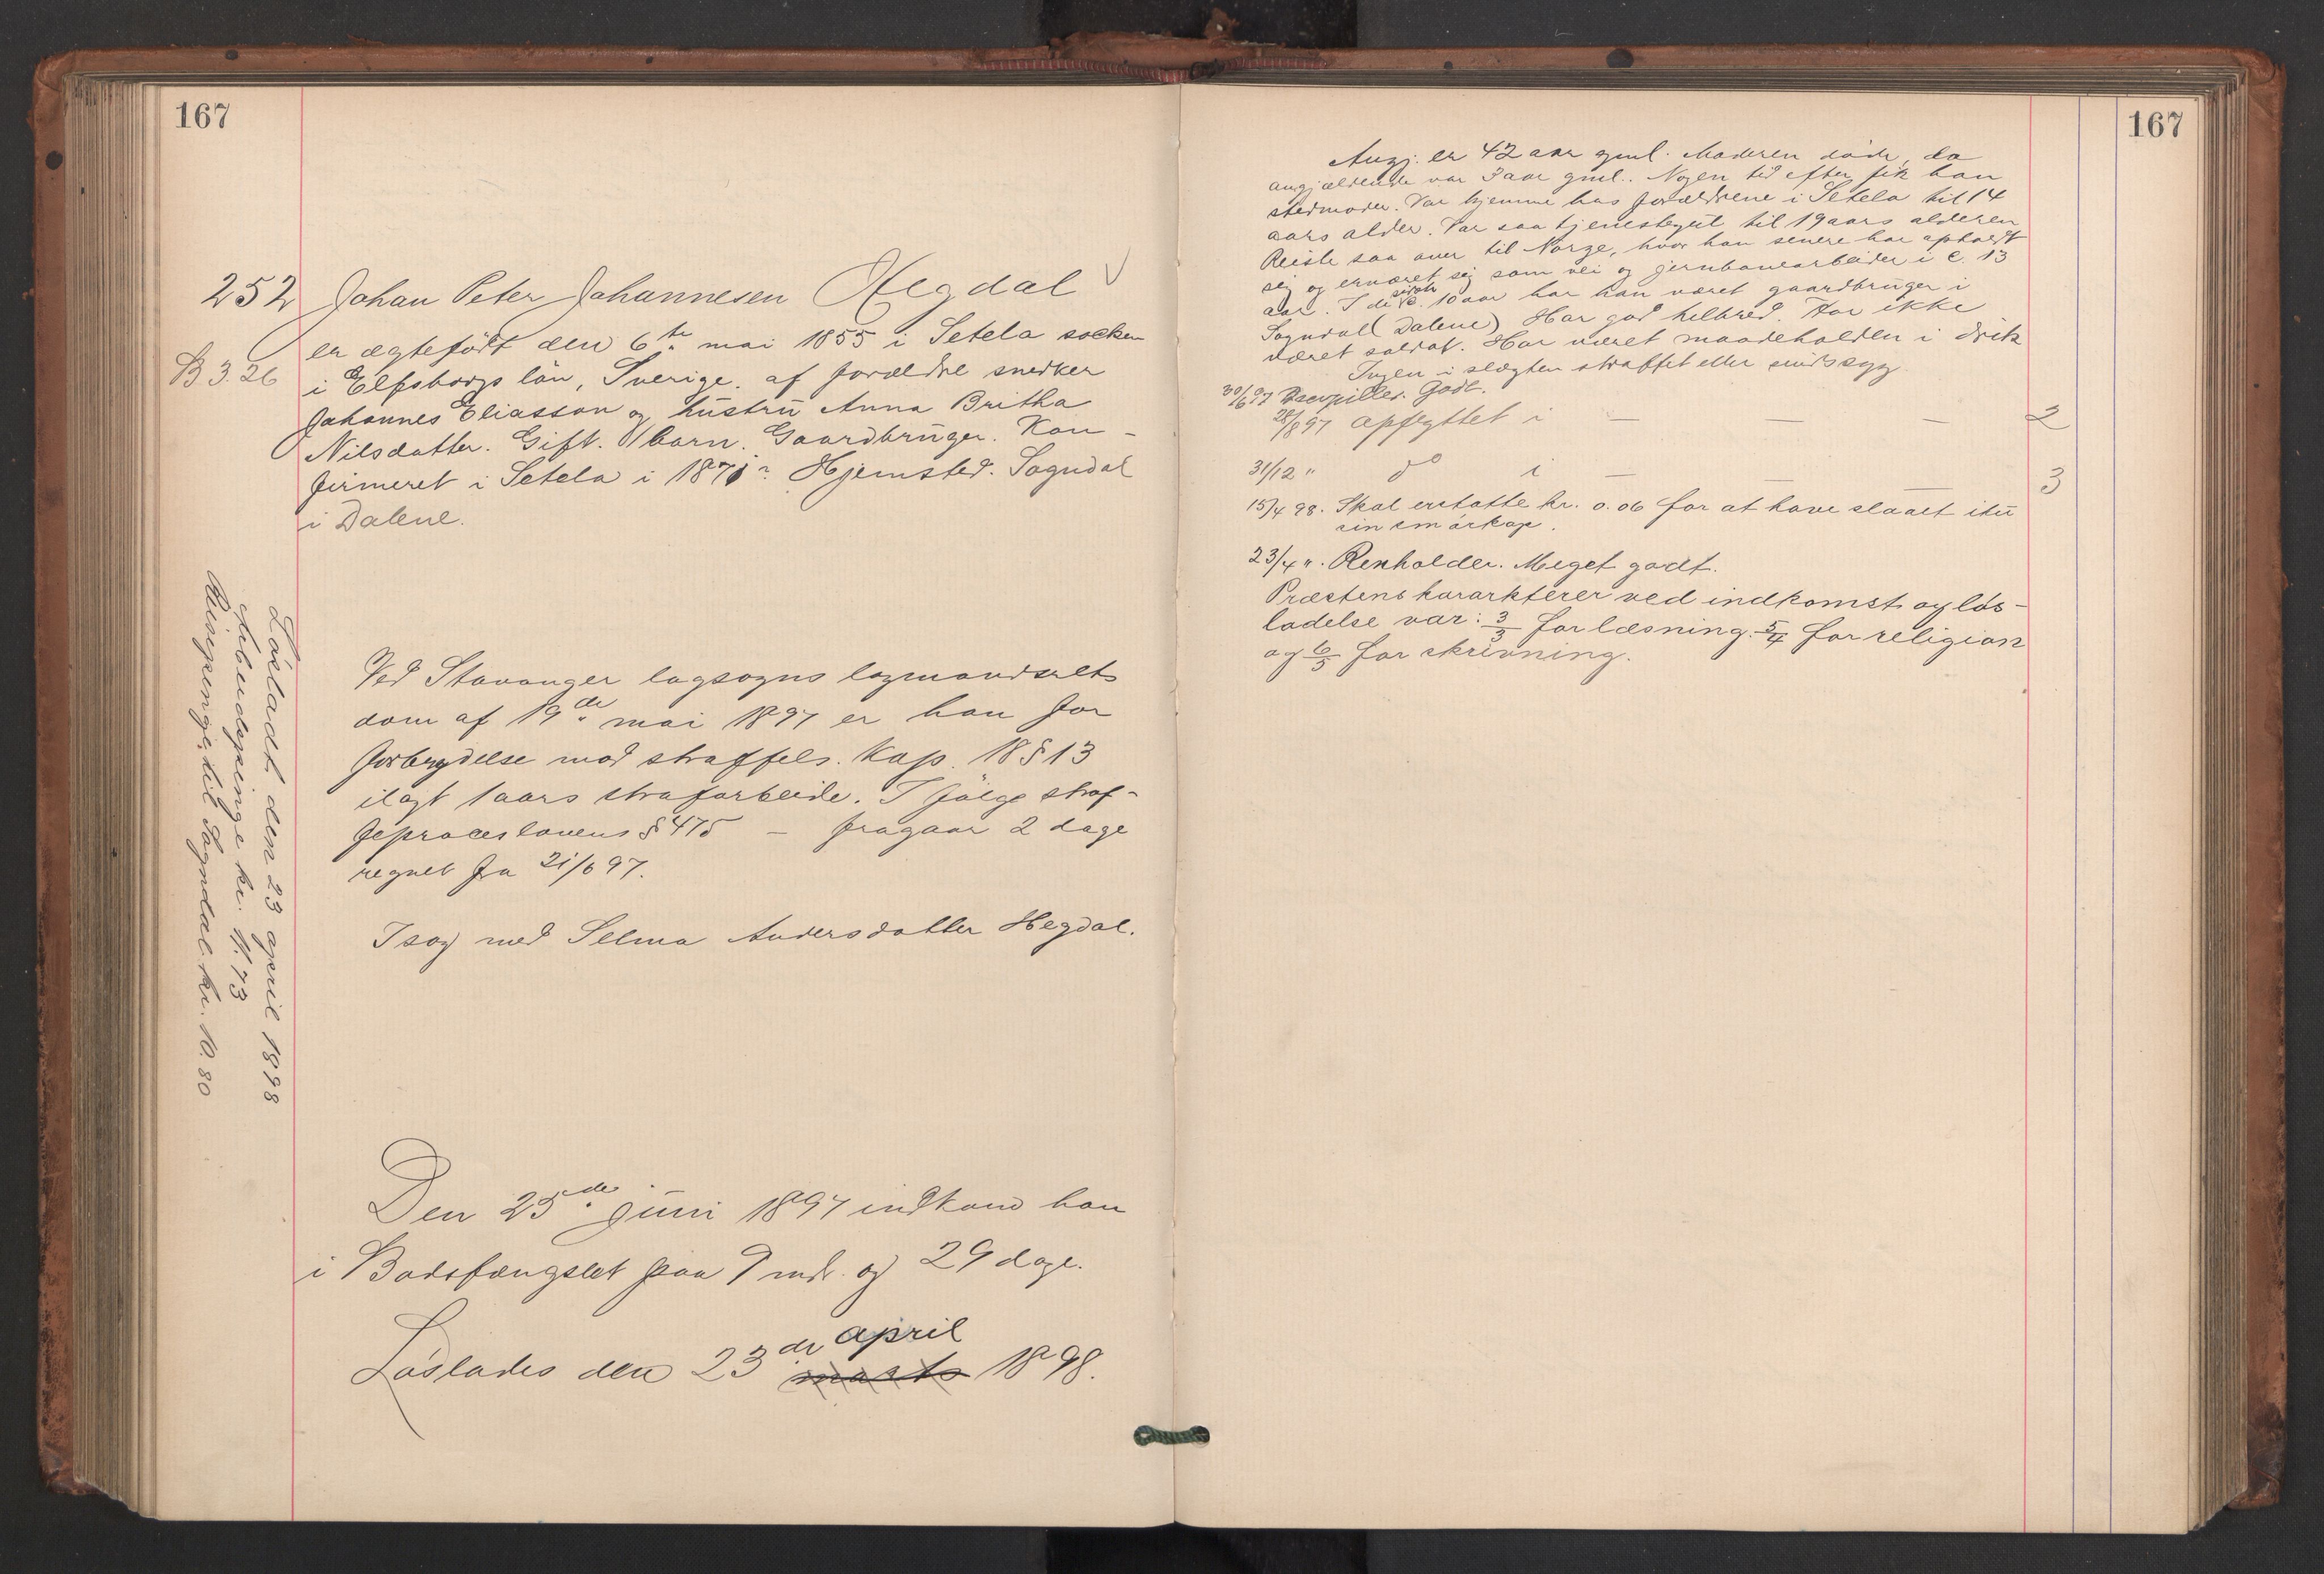 167
252 Johan Peter Johannesen Hegdal
B 3.26
er ægtefødt den 6te mai 1855 i Setela socken
i Elfsborgs län, Sverige. af forældre snedker
Johannes Eliasson og hustru Anna Britha
Nilsdatter. Gift. barn. Gaardbruger. Kon-
firmeret i Setela i 1871. Hjemsted. Sogndal
i Dalene.
Løsladt den 23 april 1898
Arbeidspenge kr. 11.73
Reisepenge til Sogndal kr. 10.80
Ved Stavanger lagsogns lagmandsrets
dom af 19de mai 1897 er han for
forbrydelse mod straffels. Kap. 18 § 13
ilagt 1 aars strafarbeide. I følge straf-
feproceslovens § 475 – fragaar 2 dage
regnet fra 21/6 97.
I sag med Selma Andersdatter Hegdal.
Den 25de juni 1897 indkom han
i Bodsfængslet paa 9 mdr. og 29 dage.
april
Løslades den 23de marts 1898.
167
Angj. er 42 aar gml. Moderen døde, da
angjældende var 3 aar gml. Nogen tid efter fik han
stedmoder. Var hjemme hos forældrene i Setela til 14
aars alder. Var saa tjenestegut til 19 aars alderen
Reiste saa over til Norge, hvor han senere har opholdt
sig og ernæret sig som vei og jernbanearbeider i c. 13
aar. I de sidste c. 10 aar har han været gaardbruger i
Sogndal (Dalene) Har god helbred. Har ikke
været soldat. Har været maadeholden i drik
Ingen i slægten straffet eller sindssyg
30/6 97 Godt.
28/8 97 opflyttet i — — — 2
31/12 " do i — — — 3
15/4 98. Skal erstatte kr. 0.06 for at have slaaet itu
sin smørkop.
23/4 ". Renholder. Meget godt.
Præstens kararkterer ved indkomst og løs-
ladelse var: 3/3 for læsning. 5/4 for religion
og 6/5 for skrivning.